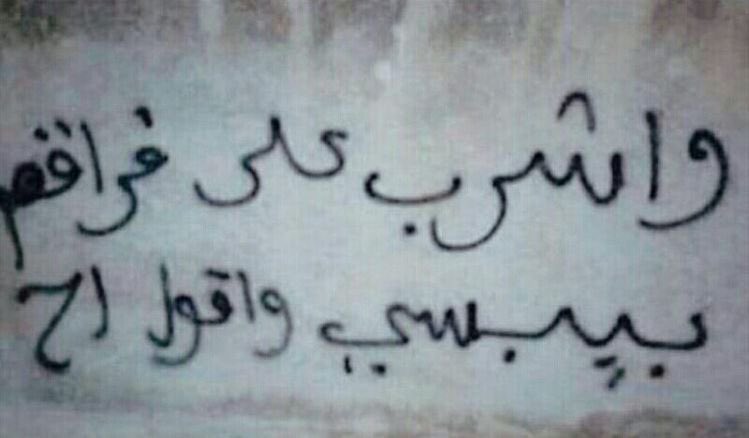 واشرب على فراقهم
بيبسي واقول اح